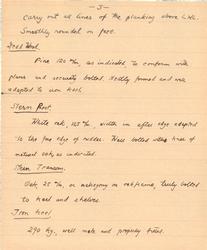 - 3 -
carry out al lines of the planking above L.W.L.
Smoothly rounded on face.
Dead Wood.
Pine 120 m/m, as indicated to conform with
plans and securely bolted. Neatly formed and well
adapted to iron keel.
Stern Post.
White oak, 125 m/m, width in after edge adapted
to the fore edge of rudder. Well bolted with knee of
natural oak, as indicated.
Main Transom.
Oak, 25 m/m, or mahogany on oakframe, truly bolted
to keel and shelves.
Iron keel
290 kg, well made and properly fitted.